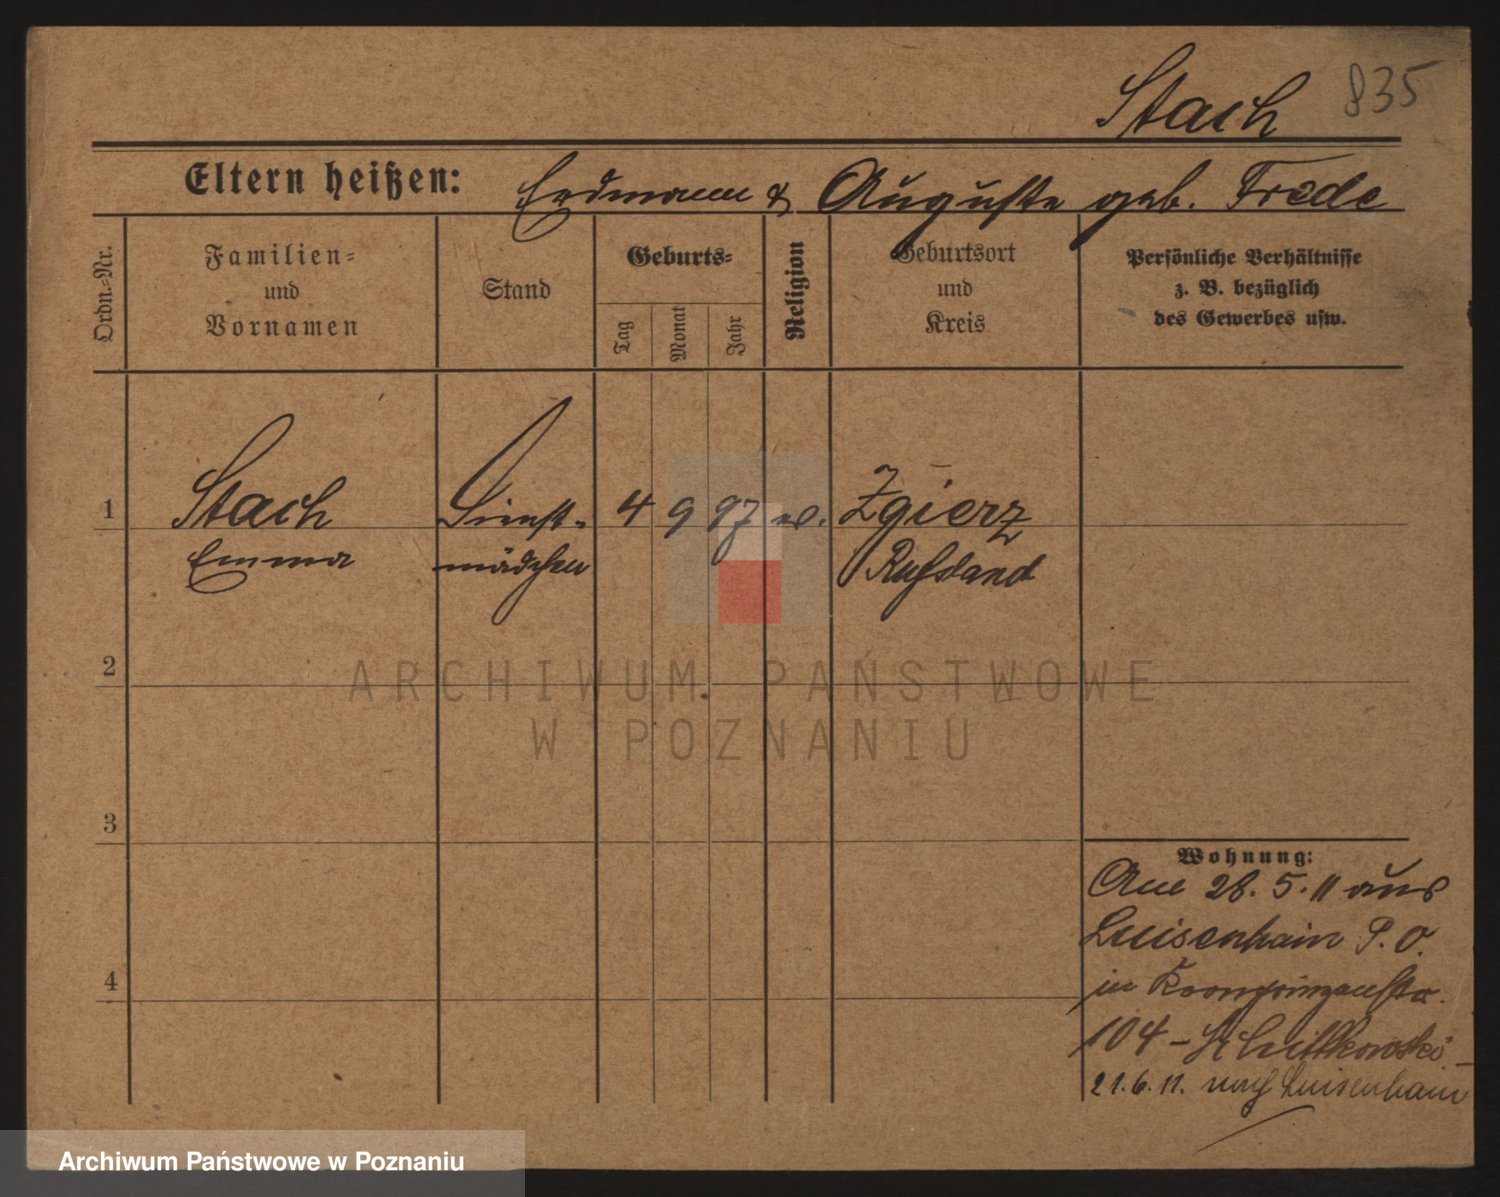 Stach 835
Eltern heißen: Erdmann & Auguste geb. Frede
Ordn.-Nr.
Familien-
und
Vornamen
Stand
Geburts-
Tag
Monat
Jahr
Religion
Geburtsort
und
Kreis
Persönliche Verhältnisse
z. B. bezüglich
des Gewerbes usw.
1 Stach Dienst- 4 9 97 ev. Zgierz
Emma mädchen Rußland
2
ARCHIWUM PAŃSTWOWE
W POZNANIU
3
Wohnung:
Am 28. 5. 11 aus
Luisenhain P. O.
4
in Kronprinzenstr.
104 -
21. 6. 11. nach Luisenhain
Archiwum Państwowe w Poznaniu